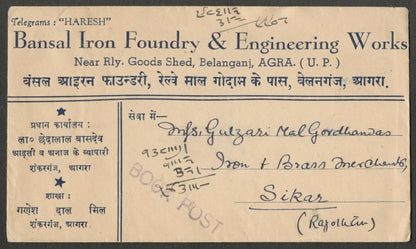 Telegrams : "HARESH"
Bansal Iron Foundry & Engineering Works
Near Rly. Goods Shed, Belanganj, AGRA. ( U. P. )
बंसल आइरन फाउन्डरी, रेल्वे माल गोदाम के पास, बेलनगंज, आगरा.
प्रधान कार्यालय :
ला० छेदालाल बासदेव
आढ़ती व अनाज के व्यापारी
शंकरगंज, आगरा
शाखा :
गणेश दाल मिल
शंकर गंज, आगरा
सेवा में—
M/s Gulzari Mal Gordhandas
Iron & Brass Merchants,
Sikar
(Rajasthan)
BOOK POST